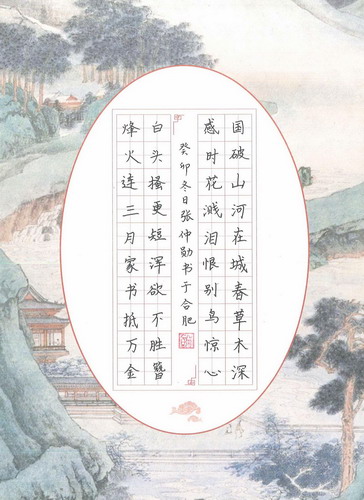 国破山河在城春草木深
感时花溅泪恨别鸟惊心
烽火连三月家书抵万金
白头搔更短浑欲不胜簪
癸卯冬日张仲勋书于合肥